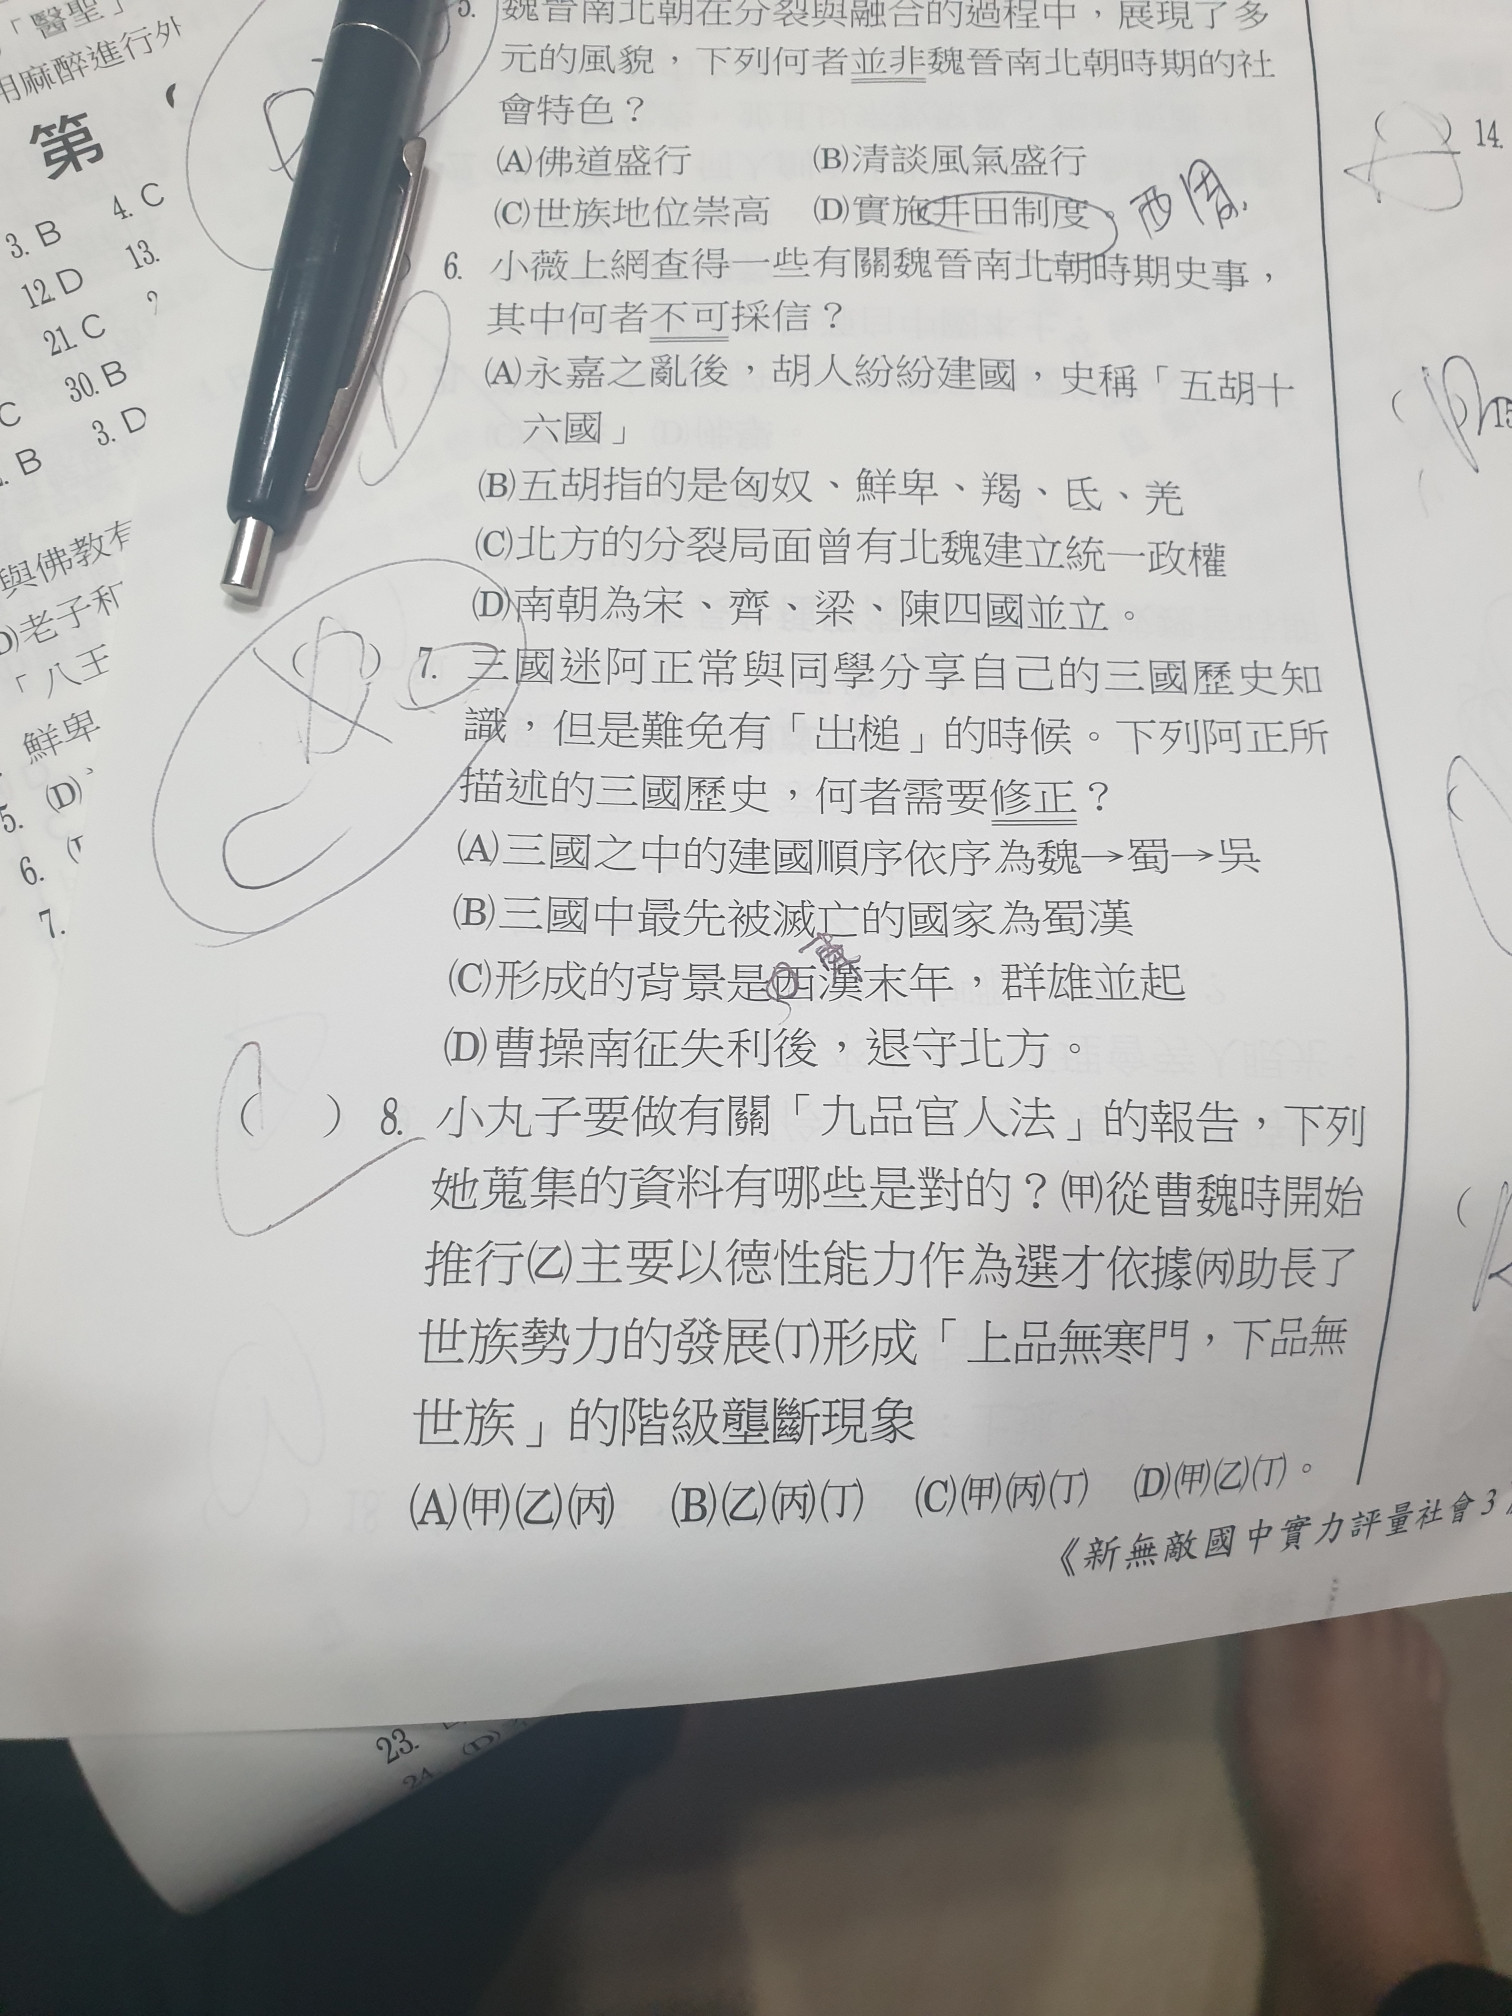 「醫聖」
用麻醉進行外
第
3. B 4. C
12. D 13.
21. C
30. B
C
3. D
B
與佛教有
老子和
「八王
鮮卑
5. (D)
6.
7.
5. 魏晉南北朝在分裂與融合的過程中,展現了多
元的風貌,下列何者並非魏晉南北朝時期的社
會特色?
(A)佛道盛行 (B)清談風氣盛行
(C)世族地位崇高 (D)實施井田制度。 西周
6. 小薇上網查得一些有關魏晉南北朝時期史事,
其中何者不可採信?
(A)永嘉之亂後,胡人紛紛建國,史稱「五胡十
六國」
(B)五胡指的是匈奴、鮮卑、羯、氐、羌
(C)北方的分裂局面曾有北魏建立統一政權
(D)南朝為宋、齊、梁、陳四國並立。
( ) 7. 三國迷阿正常與同學分享自己的三國歷史知
識,但是難免有「出槌」的時候。下列阿正所
描述的三國歷史,何者需要修正?
(A)三國之中的建國順序依序為魏→蜀→吳
(B)三國中最先被滅亡的國家為蜀漢
(C)形成的背景是西漢末年,群雄並起
(D)曹操南征失利後,退守北方。
( ) 8. 小丸子要做有關「九品官人法」的報告,下列
她蒐集的資料有哪些是對的?(甲)從曹魏時開始
推行(乙)主要以德性能力作為選才依據(丙)助長了
世族勢力的發展(丁)形成「上品無寒門,下品無
世族」的階級壟斷現象
(A)(甲)(乙)(丙) (B)(乙)(丙)(丁) (C)(甲)(丙)(丁) (D)(甲)(乙)(丁)。
《新無敵國中實力評量社會3
( ) 14.
( ) 15
23.
24. (D)